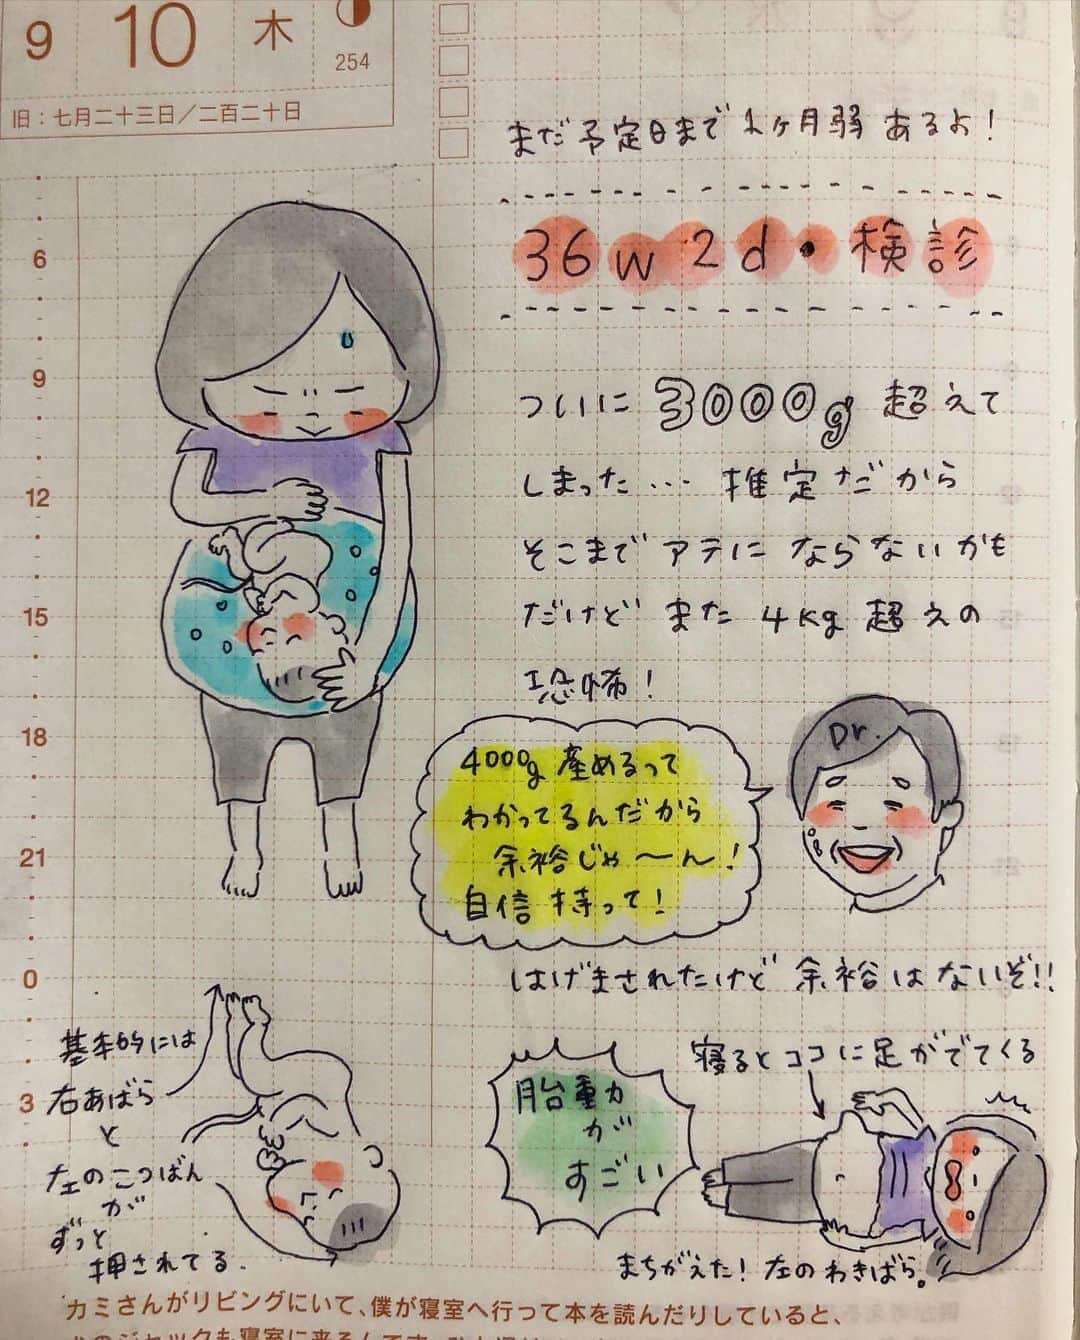 9 10 木
254
旧：七月二十三日／二百二十日
まだ予定日まで1ヶ月弱あるよ！
36w2d・検診
ついに3000g超えて
しまった…推定だから
そこまでアテにならないかも
だけどまた4kg超えの
恐怖！
Dr.
4000g産めるって
わかってるんだから
余裕じゃ〜ん！
自信持って！
はげまされたけど余裕はないぞ!!
基本的には
右あばら
と
左のこつばん
が
ずっと
押されてる.
胎動力
が
すごい
寝るとココに足がでてくる
まちがえた！左のわきばら。
6
9
12
15
18
21
0
3
カミさんがリビングにいて、僕が寝室へ行って本を読んだりしていると、